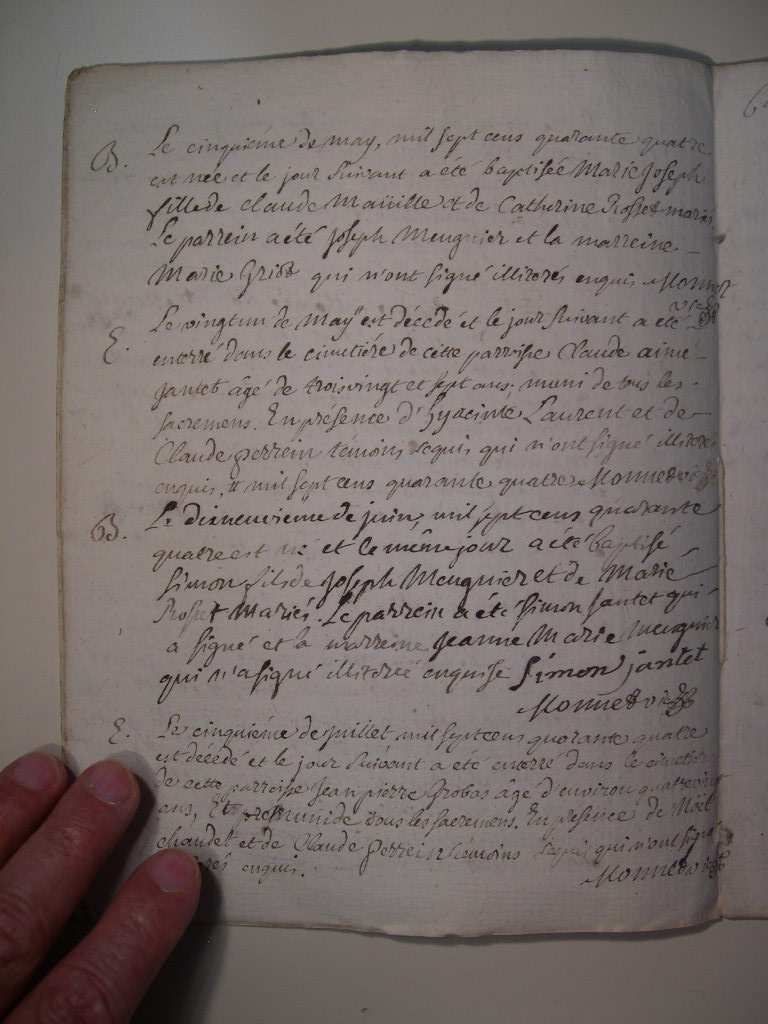 B. Le cinquiéme de may, mil sept cens quarante quatre
est née et le jour suivant a été baptisée Marie Joseph
fille de Claude Maiville et de Catherine Rosset mariés
Le parrein a été Joseph Meugnier et la marreine
Marie qui n'ont signé illiterés enquis Monnet
vic
E. Le vingtun de May # est décédé et le jour suivant a été
enterré dans le cimetiére de cette parroisse Claude aimé
jantet âgé de troisvingt et sept ans. muni de tous les
sacremens. En présence d'hyacinte Laurent et de
Claude perrein témoins requis qui n'ont signé illiterés
enquis. # mil sept cens quarante quatre Monnet vic
B. Le dixneuvieme de juin, mil sept cens quarante
quatre est né et le même jour a été baptisé
Simon fils de Joseph Meugnier et de Marie
Rosset Mariés. Le parrein a été Simon jantet qui
a signé et la marreine Jeanne Marie Meugnier
qui n'a signé illiterée enquise Simon jantet
Monnet vic
E. Le cinquiéme de juillet mil sept cens quarante quatre
est décédé et le jour suivant a été enterré dans le cimetiere
de cette parroisse Jean pierre Grobas âgé d'environ quatrevingt
ans, Et muni de tous les sacremens. En presence de Noël
chaudet et de Claude perrein témoins requis qui n'ont signé
enquis. Monnet vic